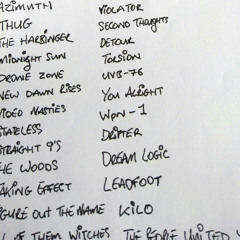 AZIMUTH VIOLATOR
THUG SECOND THOUGHTS
THE HARBINGER DETOUR
MIDNIGHT SUN TORSION
DRONE ZONE UVB-76
NEW DAWN RISES YOU ALRIGHT
VIDEO NASTIES WPN-1
STATELESS DRIFTER
STRAIGHT 9'S DREAM LOGIC
THE WOODS LEADFOOT
TAKING EFFECT KILO
FIGURE OUT THE NAME
OF THEM WITCHES THE